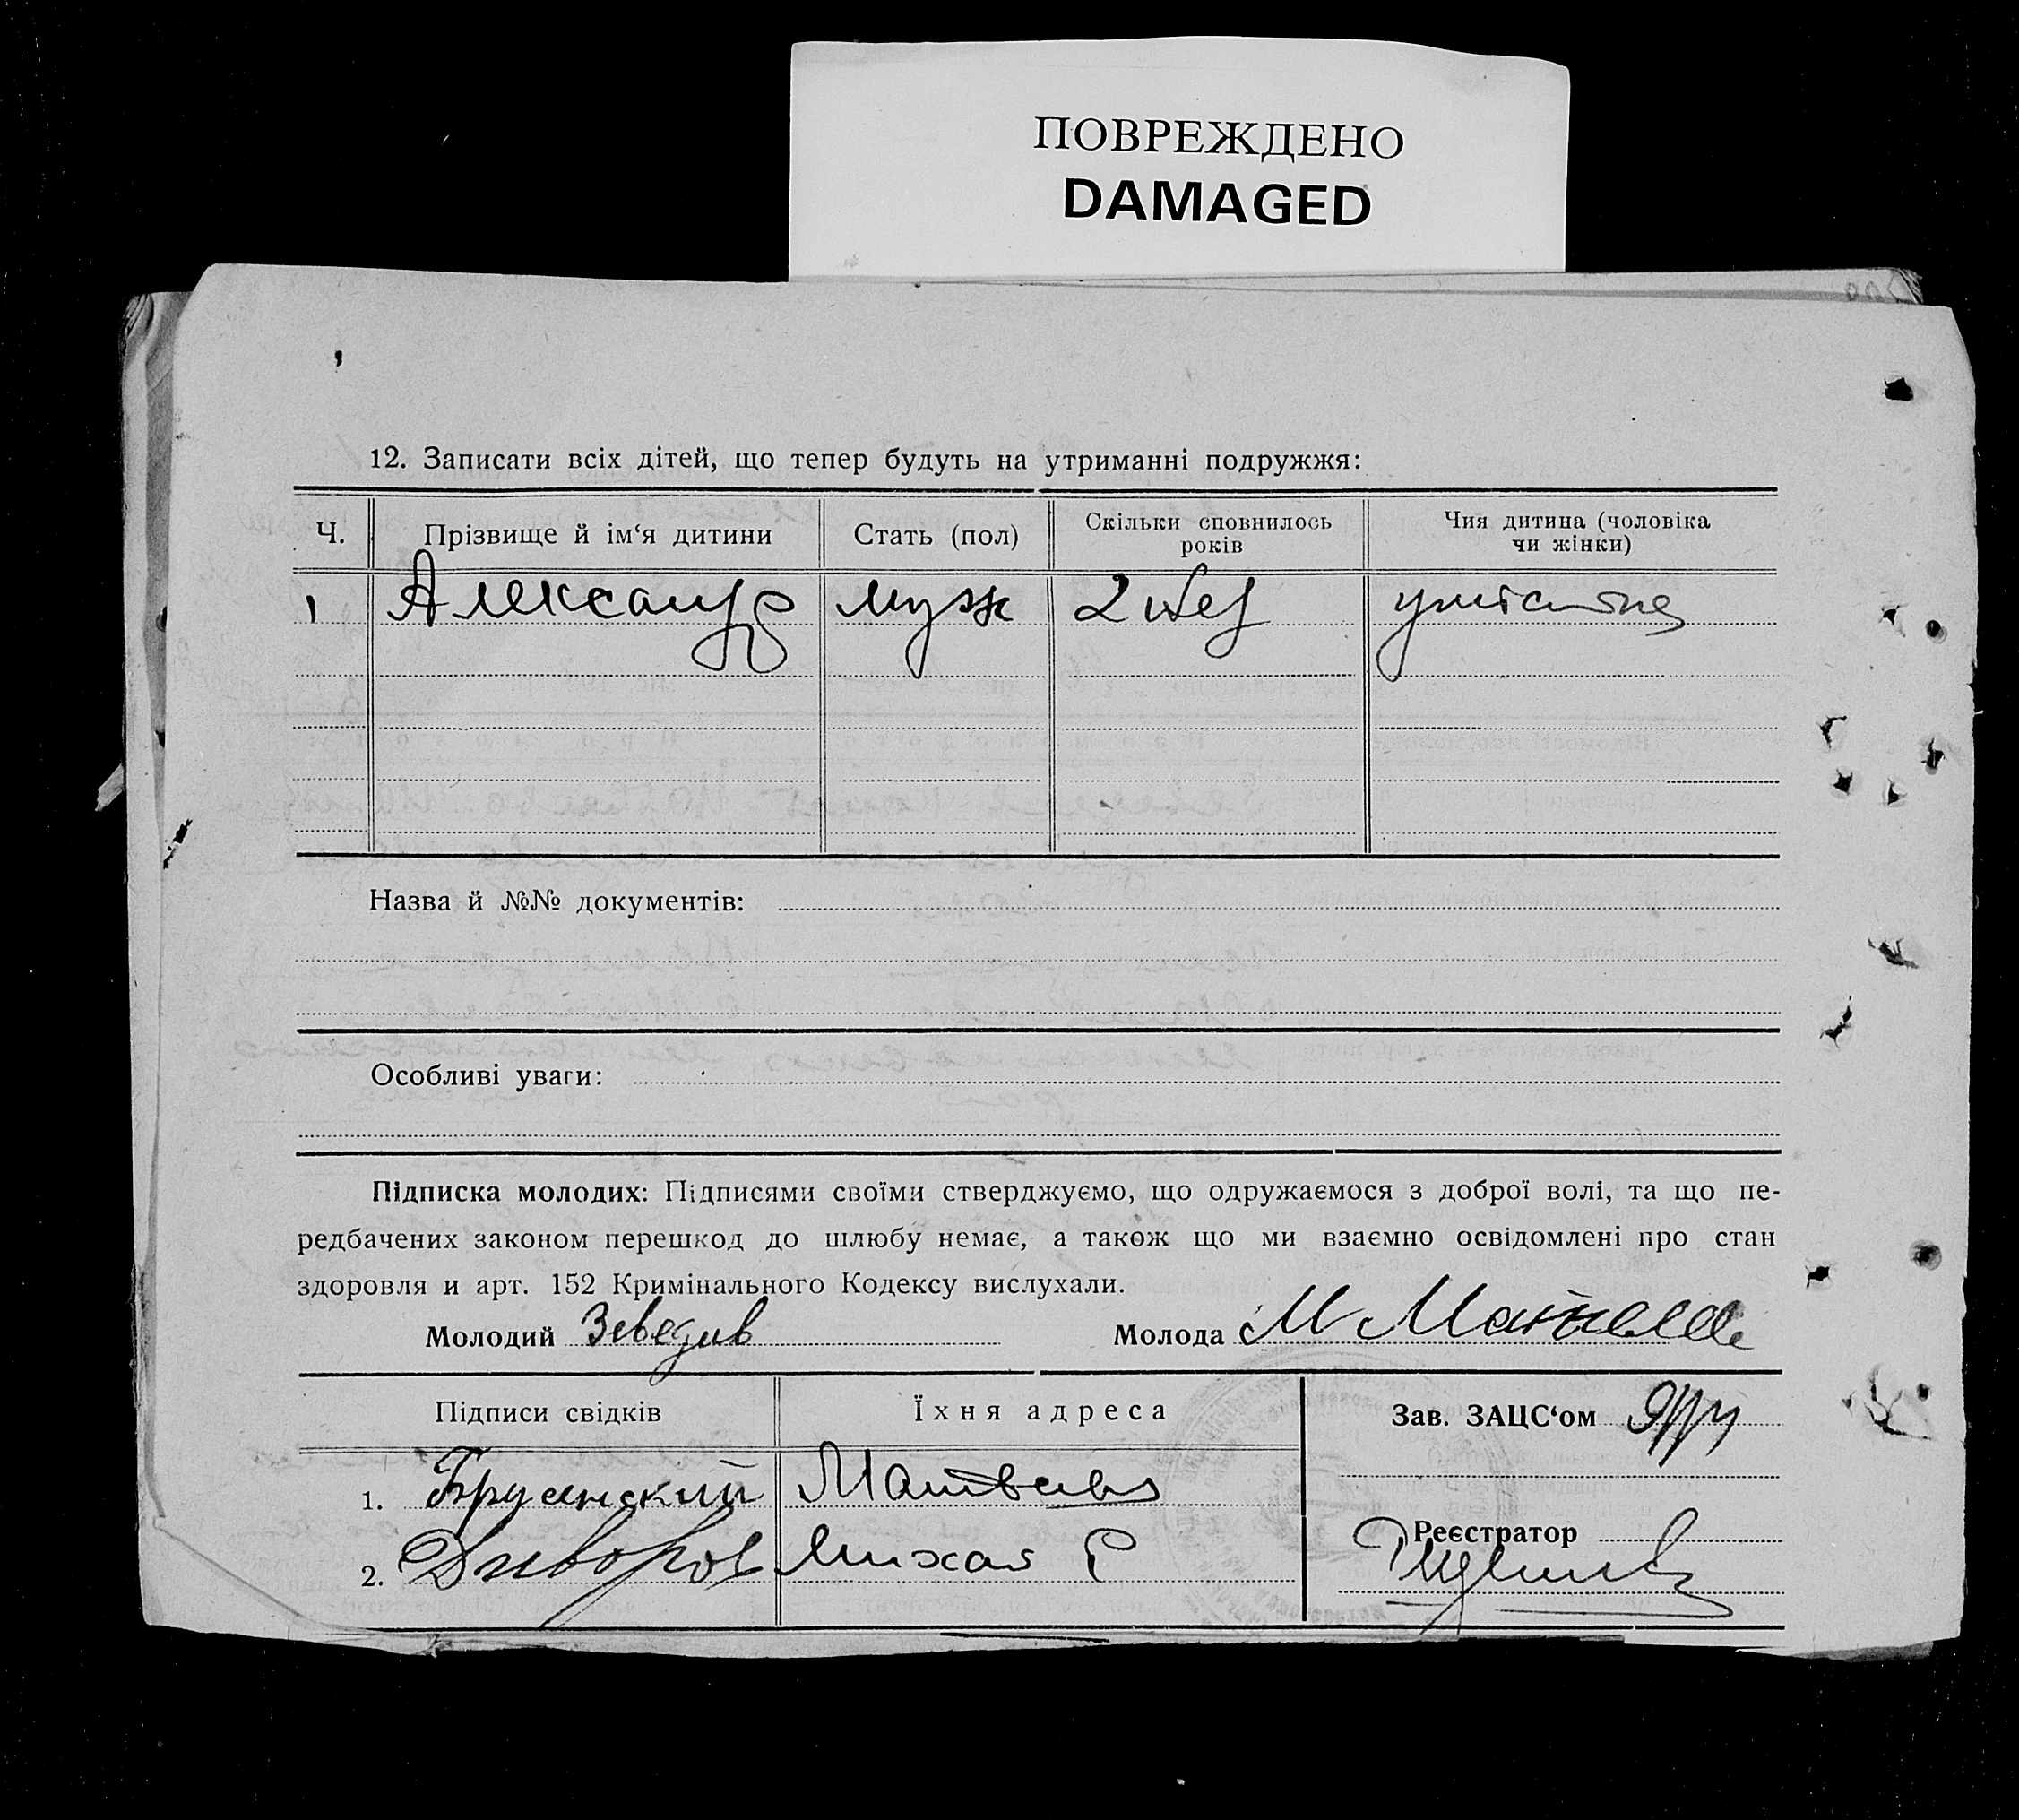 ПОВРЕЖДЕНО
DAMAGED
12. Записати всіх дітей, що тепер будуть на утриманні подружжя:
Ч. Прізвище й ім‘я дитини Стать (пол) Скільки сповнилось років Чия дитина (чоловіка чи жінки)
1 Александр муж 2
Назва й №№ документів:
Особливі уваги:
Підписка молодих: Підписями своїми стверджуємо, що одружаємося з доброї волі, та що пе-
редбачених законом перешкод до шлюбу немає, а також що ми взаємно освідомлені про стан
здоровля и арт. 152 Кримінального Кодексу вислухали.
Молодий Молода М
Підписи свідків Їхня адреса Зав. ЗАЦС‘ом
1.
Реєстратор
2.